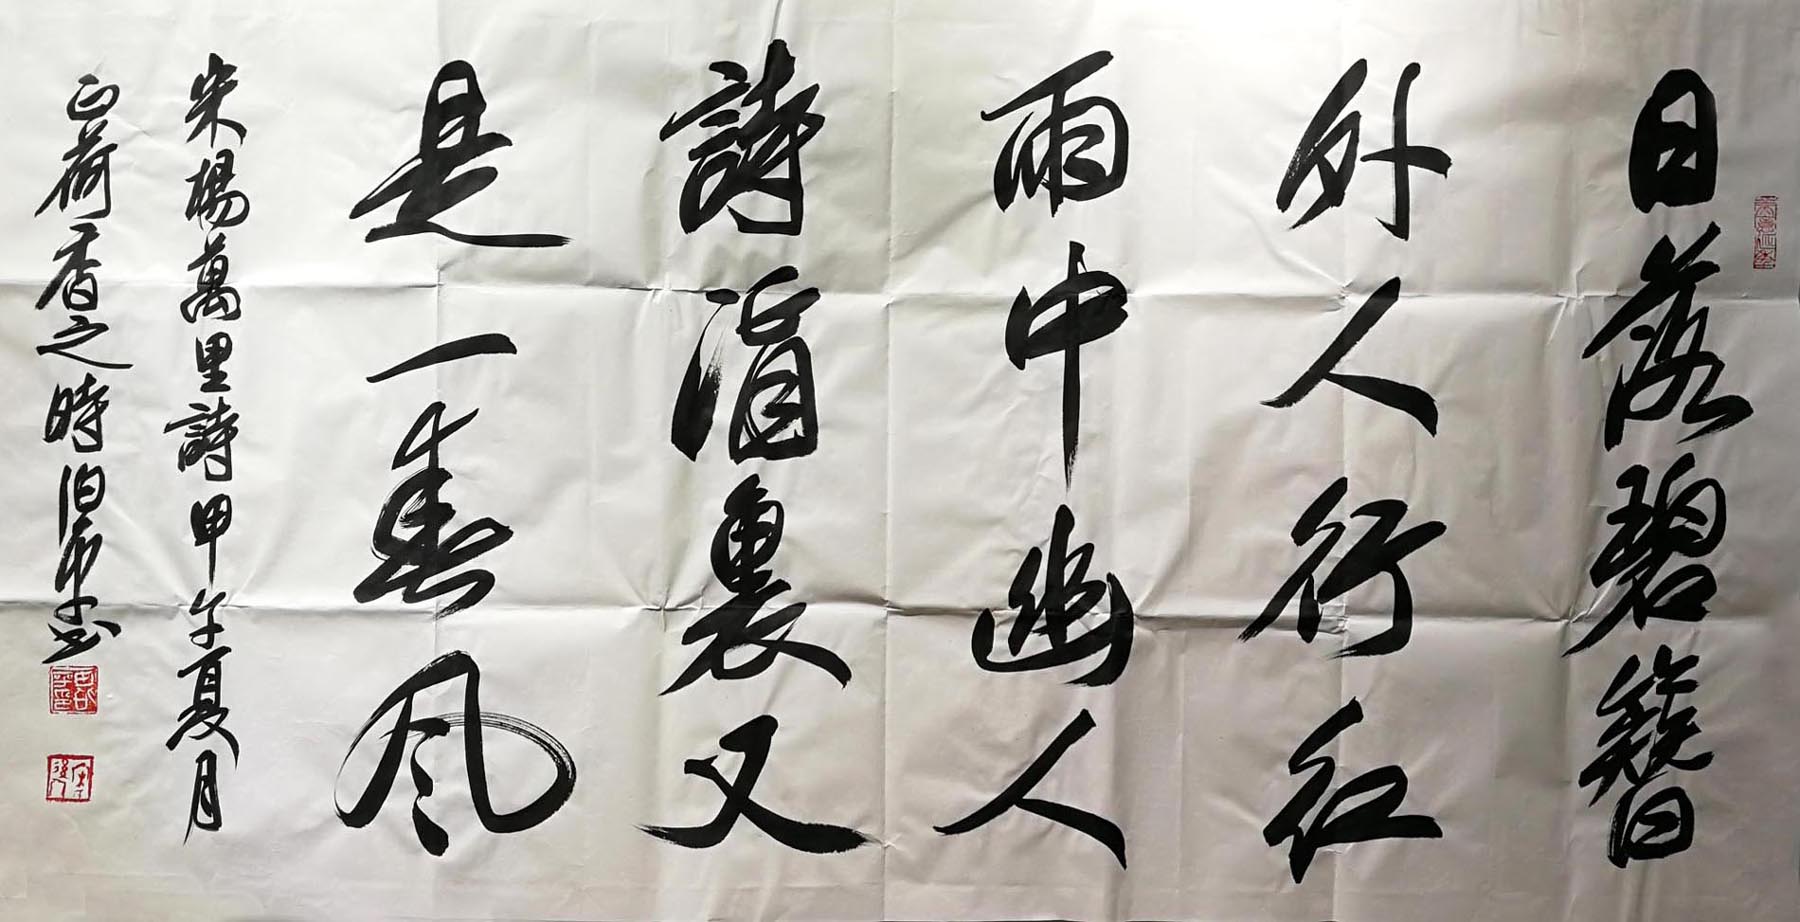 日落碧簪
外人行红
雨中幽人
詩酒裏又
是一春风
宋楊萬里詩甲午夏月
正荷香之時